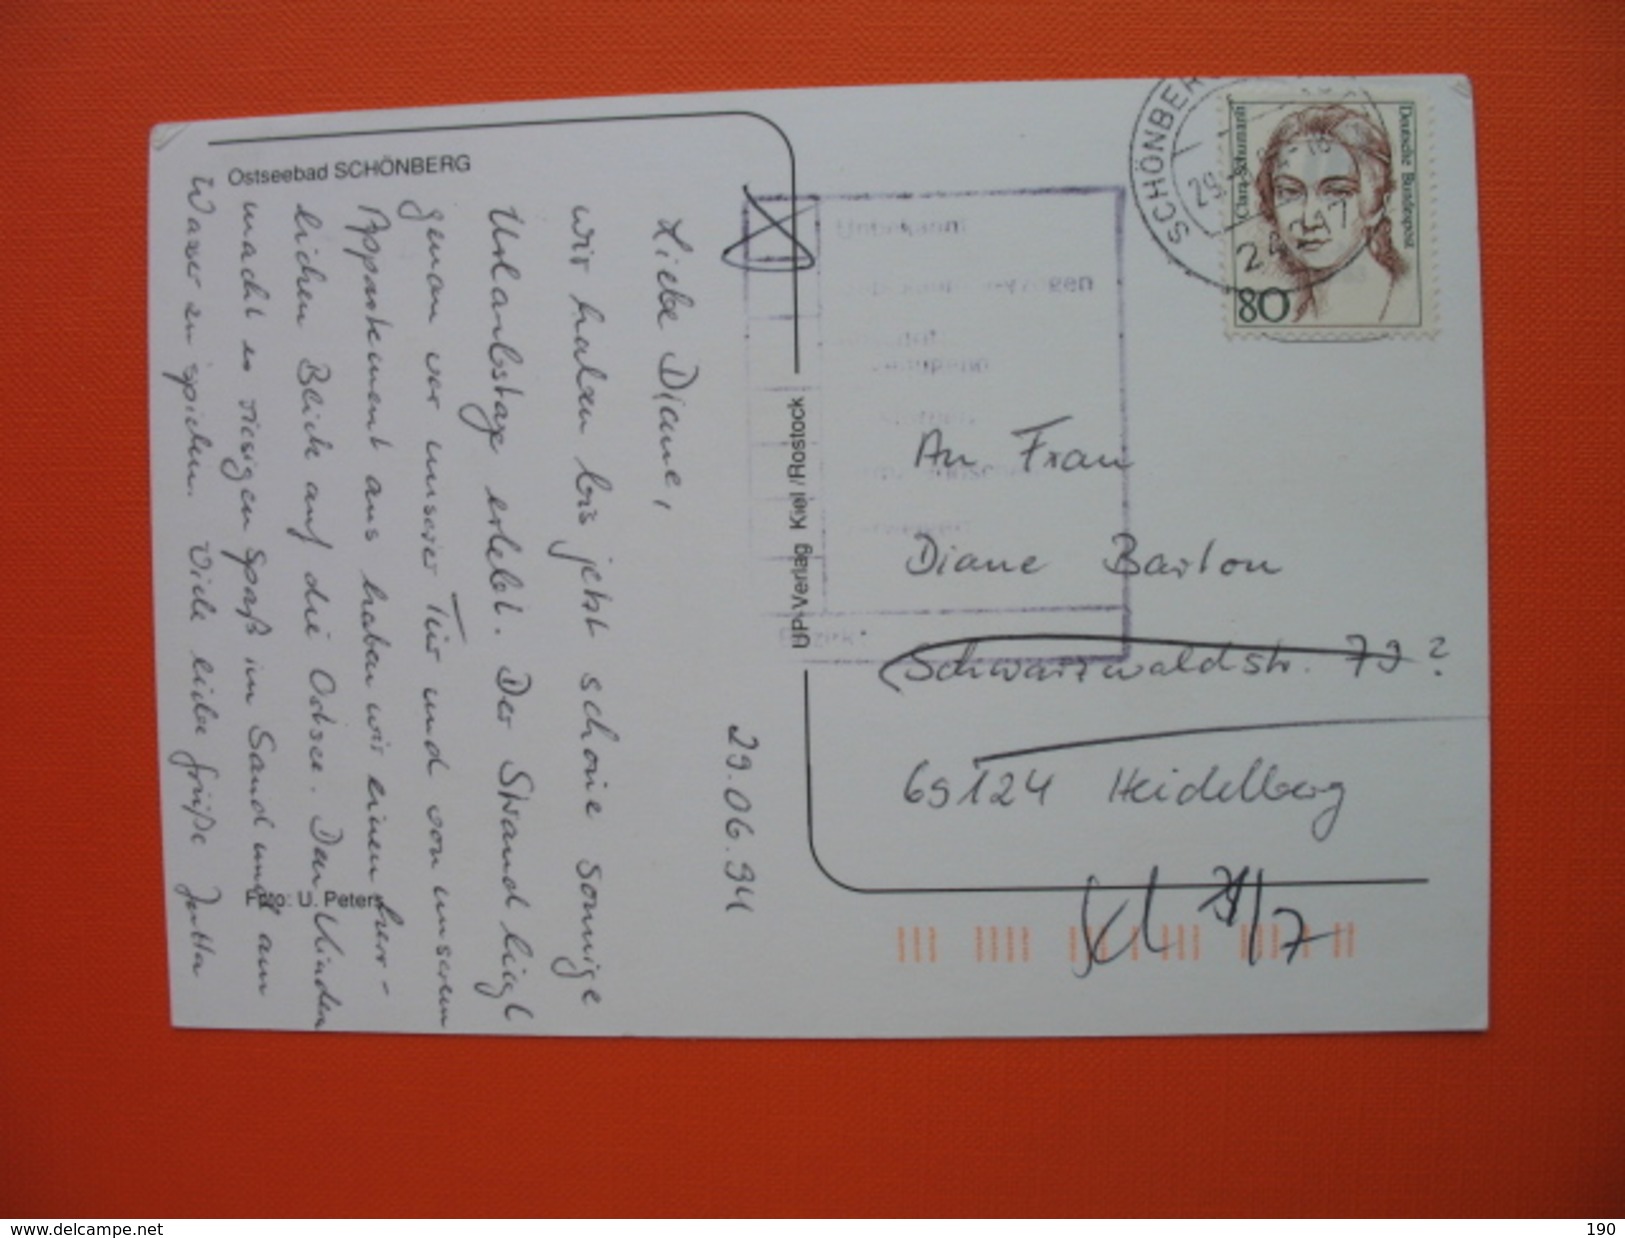 Ostseebad SCHÖNBERG
29.06.94
Liebe Diane,
wir haben bis jetzt schöne sonnige
Urlaubstage erlebt. Der Strand liegt
genau vor unserer Tür und von unserem
Appartement aus haben wir einen herr-
lichen Blick auf die Ostsee. Den Kindern
macht es riesigen Spaß im Sand und am
Wasser zu spielen. Viele liebe Grüße Jutta
Foto: U. Peters
UP-Verlag Kiel/Rostock
Unbekannt
Bezirk
SCHÖNBERG
Clara Schumann
Deutsche Bundespost
80
An Frau
Diane Barton
Schwarzwaldstr. 79?
69124 Heidelberg
www.delcampe.net
190